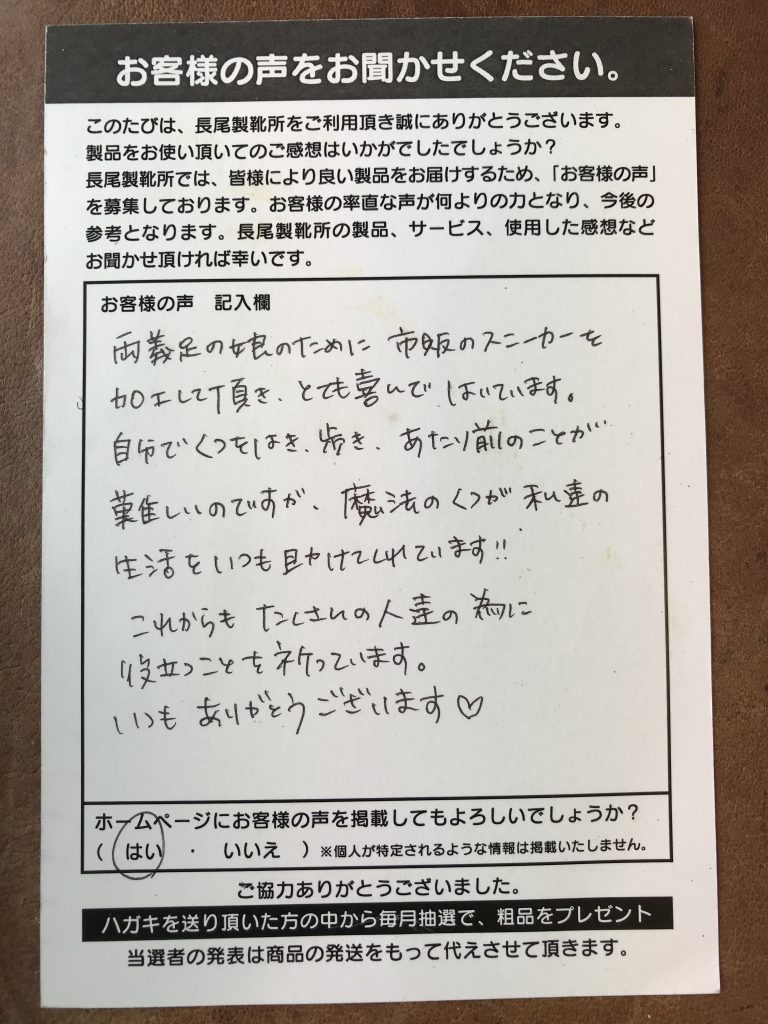 お客様の声をお聞かせください。
このたびは、長尾製靴所をご利用頂き誠にありがとうございます。
製品をお使い頂いてのご感想はいかがでしたでしょうか？
長尾製靴所では、皆様により良い製品をお届けするため、「お客様の声」
を募集しております。お客様の率直な声が何よりの力となり、今後の
参考となります。長尾製靴所の製品、サービス、使用した感想など
お聞かせ頂ければ幸いです。
お客様の声　記入欄
両義足の娘のために 市販のスニーカーを
加工して頂き、とても喜んで はいています。
自分でくつをはき、歩き、あたり前のことが
難しいのですが、魔法のくつが 私達の
生活をいつも助けてくれています!!
これからも たくさんの人達の為に
役立つことを祈っています。
いつも ありがとうございます♡
ホームページにお客様の声を掲載してもよろしいでしょうか？
（　はい　・　いいえ　）※個人が特定されるような情報は掲載いたしません。
ご協力ありがとうございました。
ハガキを送り頂いた方の中から毎月抽選で、粗品をプレゼント
当選者の発表は商品の発送をもって代えさせて頂きます。